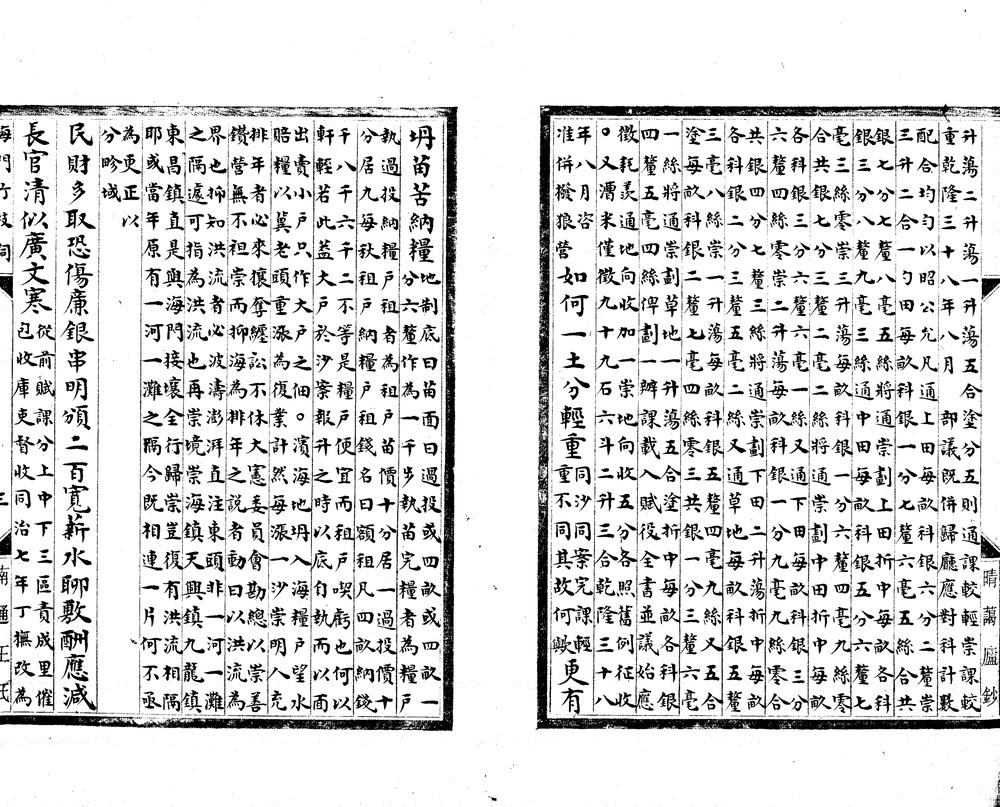 晴藹廬鈔
升蕩二升蕩一升蕩五合塗分五則通課較輕崇課較
重乾隆三十八年八月　部議既併歸廳應對科計數
配合均勻以昭公允凡通上田每畝科銀六分二釐崇
三升二合一勺田每畝科銀一分七釐六毫五絲合共
銀七分七釐八毫五絲將通崇劃上田折中每畝各科
銀三分八釐九毫三絲通中田每畝科銀五分六釐七
毫三絲零崇三升蕩每畝科銀一分六釐四毫九絲零
合共銀七分三釐二毫二絲將通崇劃中田折中每畝
各科銀三分六釐六毫一絲又通下田每畝科銀三分
六釐四絲零崇二升蕩每畝科銀一分九毫九絲零合
共銀四分七釐三絲將通崇劃下田二升蕩折中每畝
各科銀二分三釐五毫二絲又通草地每畝科銀五釐
三毫八絲崇一升蕩每畝科銀五釐四毫九絲又五合
塗每畝科銀二釐七毫四絲零三共銀一分三釐六毫
一絲將通崇劃草地一升蕩五合塗折中每畝各科銀
四釐五毫四絲俾劃一辦課載入賦役全書並議始應
徵耗羨通地向收加一崇地向收五分各照舊例征收
○又漕米僅徵九十九石六斗二升三合乾隆三十八
年八月咨
准併撥狼營
如何一土分輕重
同沙同案完課輕
重不同其故何歟
更有
坍苗苦納糧
地制底曰苗面曰過投或四畝一
分六釐作為一千步執苗完糧者為糧戶
執過投納糧戶租者為租戶苗價十分居一過投價十
分居九每秋租戶納糧戶租錢名曰額租凡四畝納錢
千八千六千二不等是糧戶便宜而租戶喫虧也何以
軒輊若此蓋大戶於沙案報升之時以底自執而以面
出賣小戶只作大戶之佃○濱海地坍入海糧戶望水
賠糧以冀老頭重漲為復業計然每漲一沙崇明人充
排年者必來攘奪纏訟不休大憲委員會勘總以崇善
鑽營無不袒崇而抑海為排年之說者動曰以洪流為
界也抑知洪流者必波濤澎湃直注東頭非一河一灘
之隔遽可指為洪流也再崇境崇海鎮天興鎮九龍鎮
東昌鎮直是與海門接壤全行歸崇豈復有洪流相隔
耶或當年原有一河一灘之隔今既相連一片何不亟
為更正以
分畛域
民財多取恐傷廉銀串明頒二百寬薪水聊敷酬應減
長官清似廣文寒
從前賦課分上中下三區責成里催
包收庫吏督收同治七年丁撫改為
海門竹枝詞
三
南通王氏